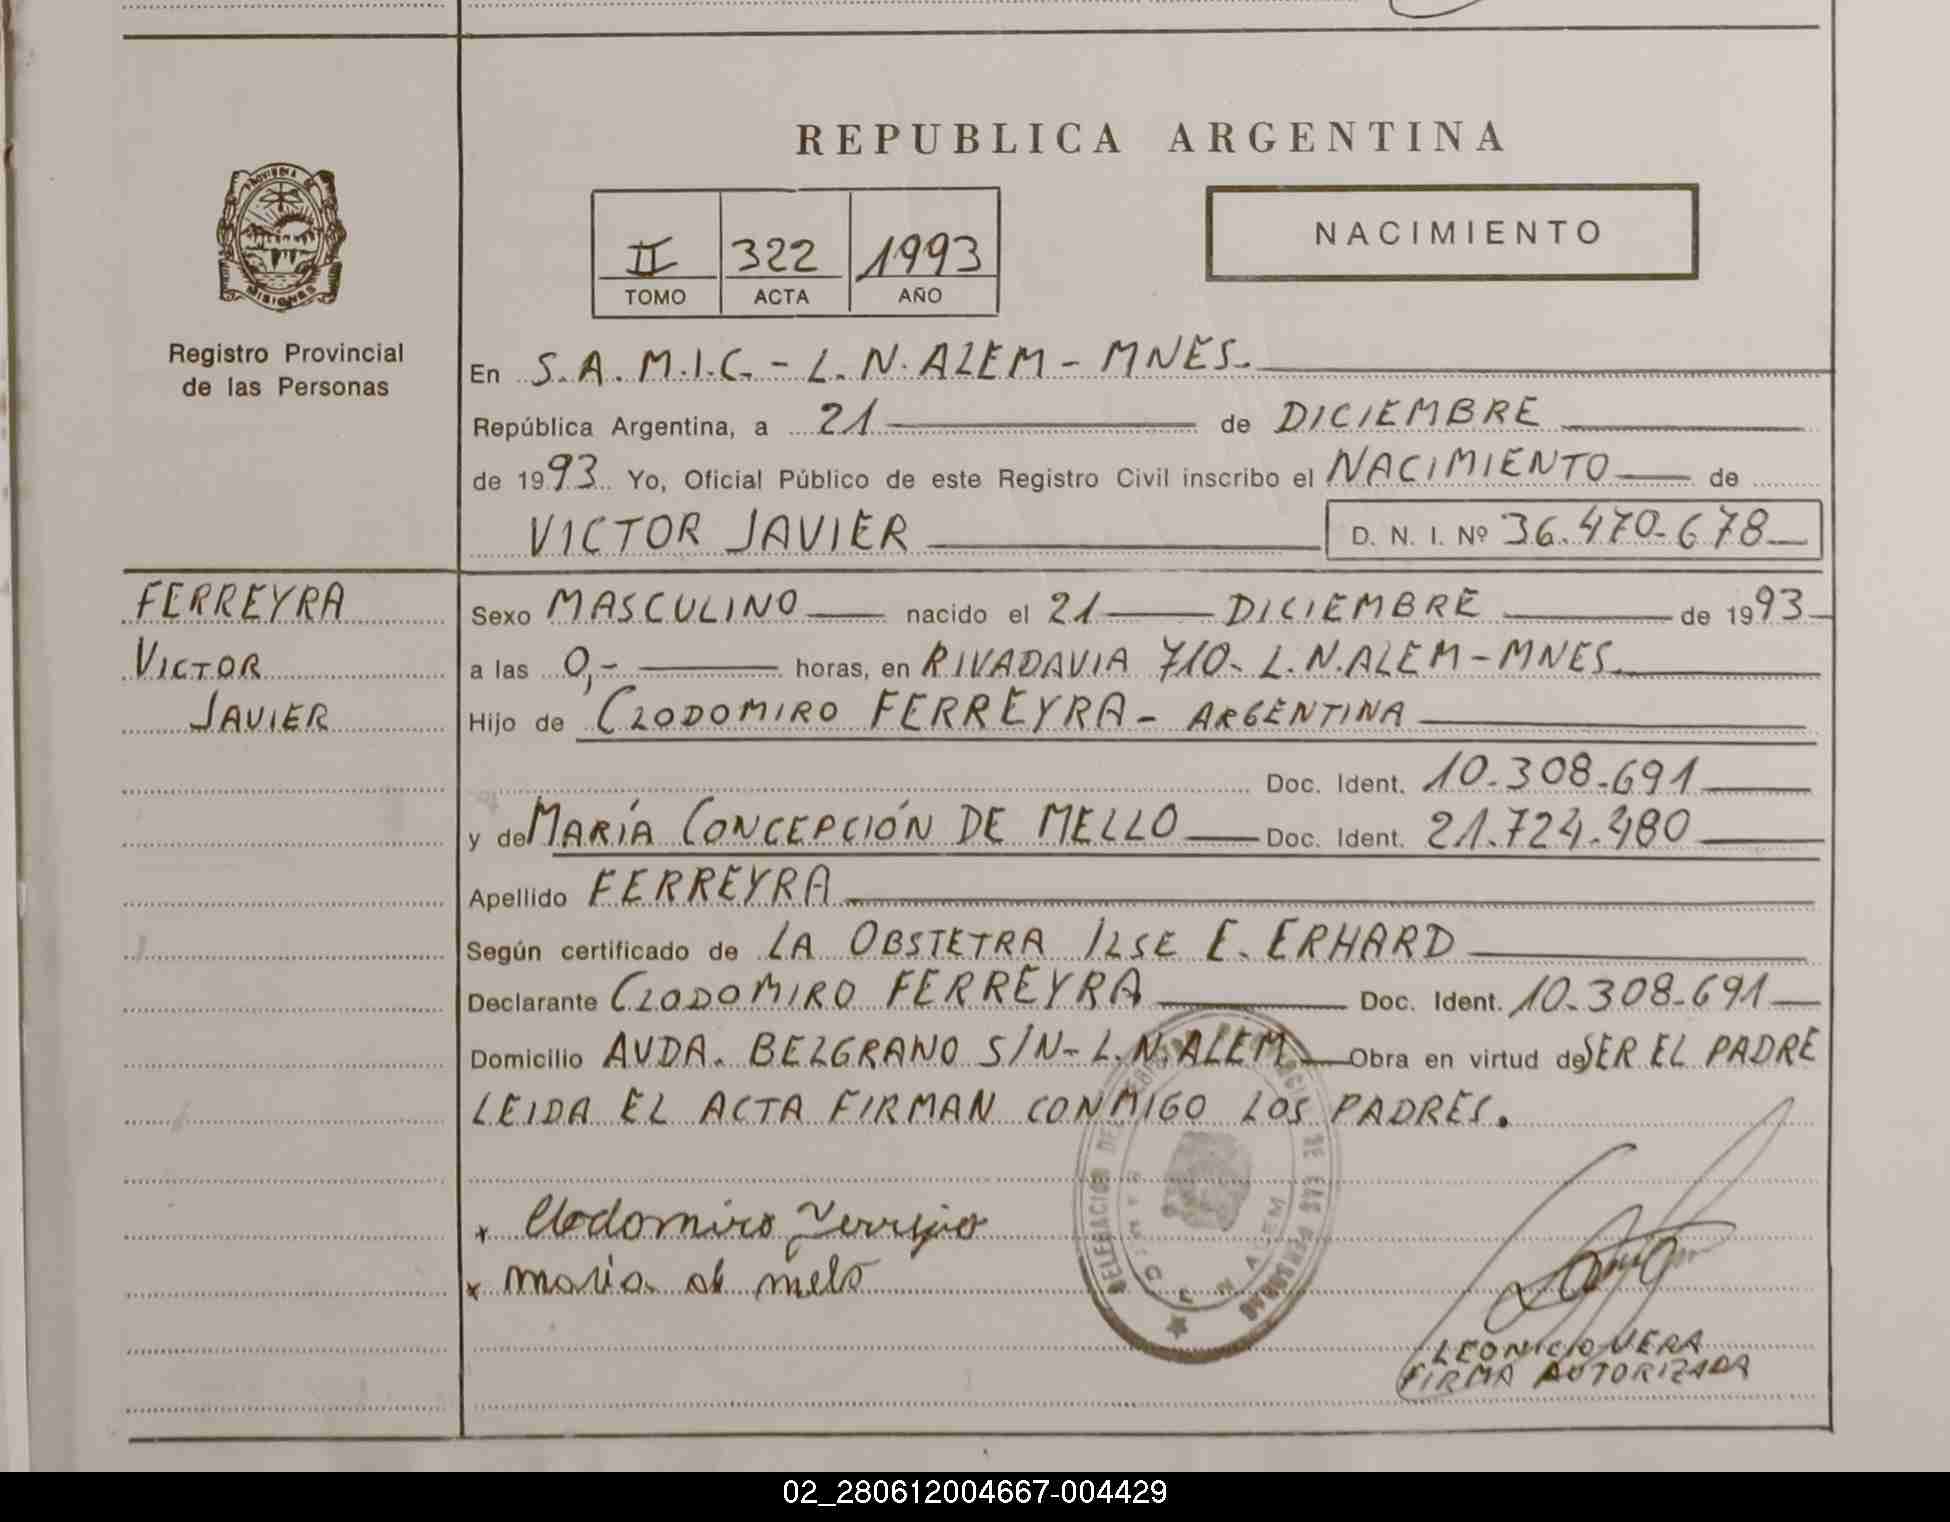 REPUBLICA ARGENTINA
PROVINCIA DE
MISIONES
Registro Provincial
de las Personas
II 322 1993
TOMO ACTA AÑO
NACIMIENTO
En S.A.M.I.C. - L.N. ALEM - MNES.
República Argentina, a 21 de DICIEMBRE
de 1993 Yo, Oficial Público de este Registro Civil inscribo el NACIMIENTO de
VICTOR JAVIER D. N. I. Nº 36.470-678
FERREYRA
VICTOR
JAVIER
Sexo MASCULINO nacido el 21 DICIEMBRE de 1993
a las 0,- horas, en RIVADAVIA 710- L.N.ALEM-MNES.
Hijo de CLODOMIRO FERREYRA - ARGENTINA
Doc. Ident. 10-308-691
y de MARÍA CONCEPCIÓN DE MELLO Doc. Ident. 21.724.480
Apellido FERREYRA
Según certificado de LA OBSTETRA ILSE E. ERHARD
Declarante CLODOMIRO FERREYRA Doc. Ident. 10-308-691
Domicilio AVDA. BELGRANO S/N- L.N.ALEM Obra en virtud de SER EL PADRE
LEIDA EL ACTA FIRMAN CONMIGO LOS PADRES.
x Clodomiro Ferreyra
x maria de melo
DELEGACION DEL DE LAS PERSONAS
N ALEM
LEONICIO VERA
FIRMA AUTORIZADA
02_280612004667-004429